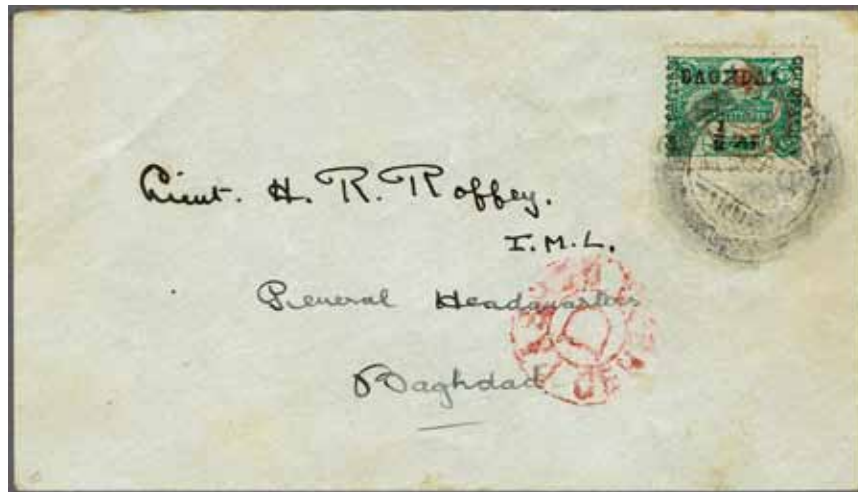 BAGHDAD
Lieut. H. R. Roffey.
I.M.L.
General Headquarters
Baghdad